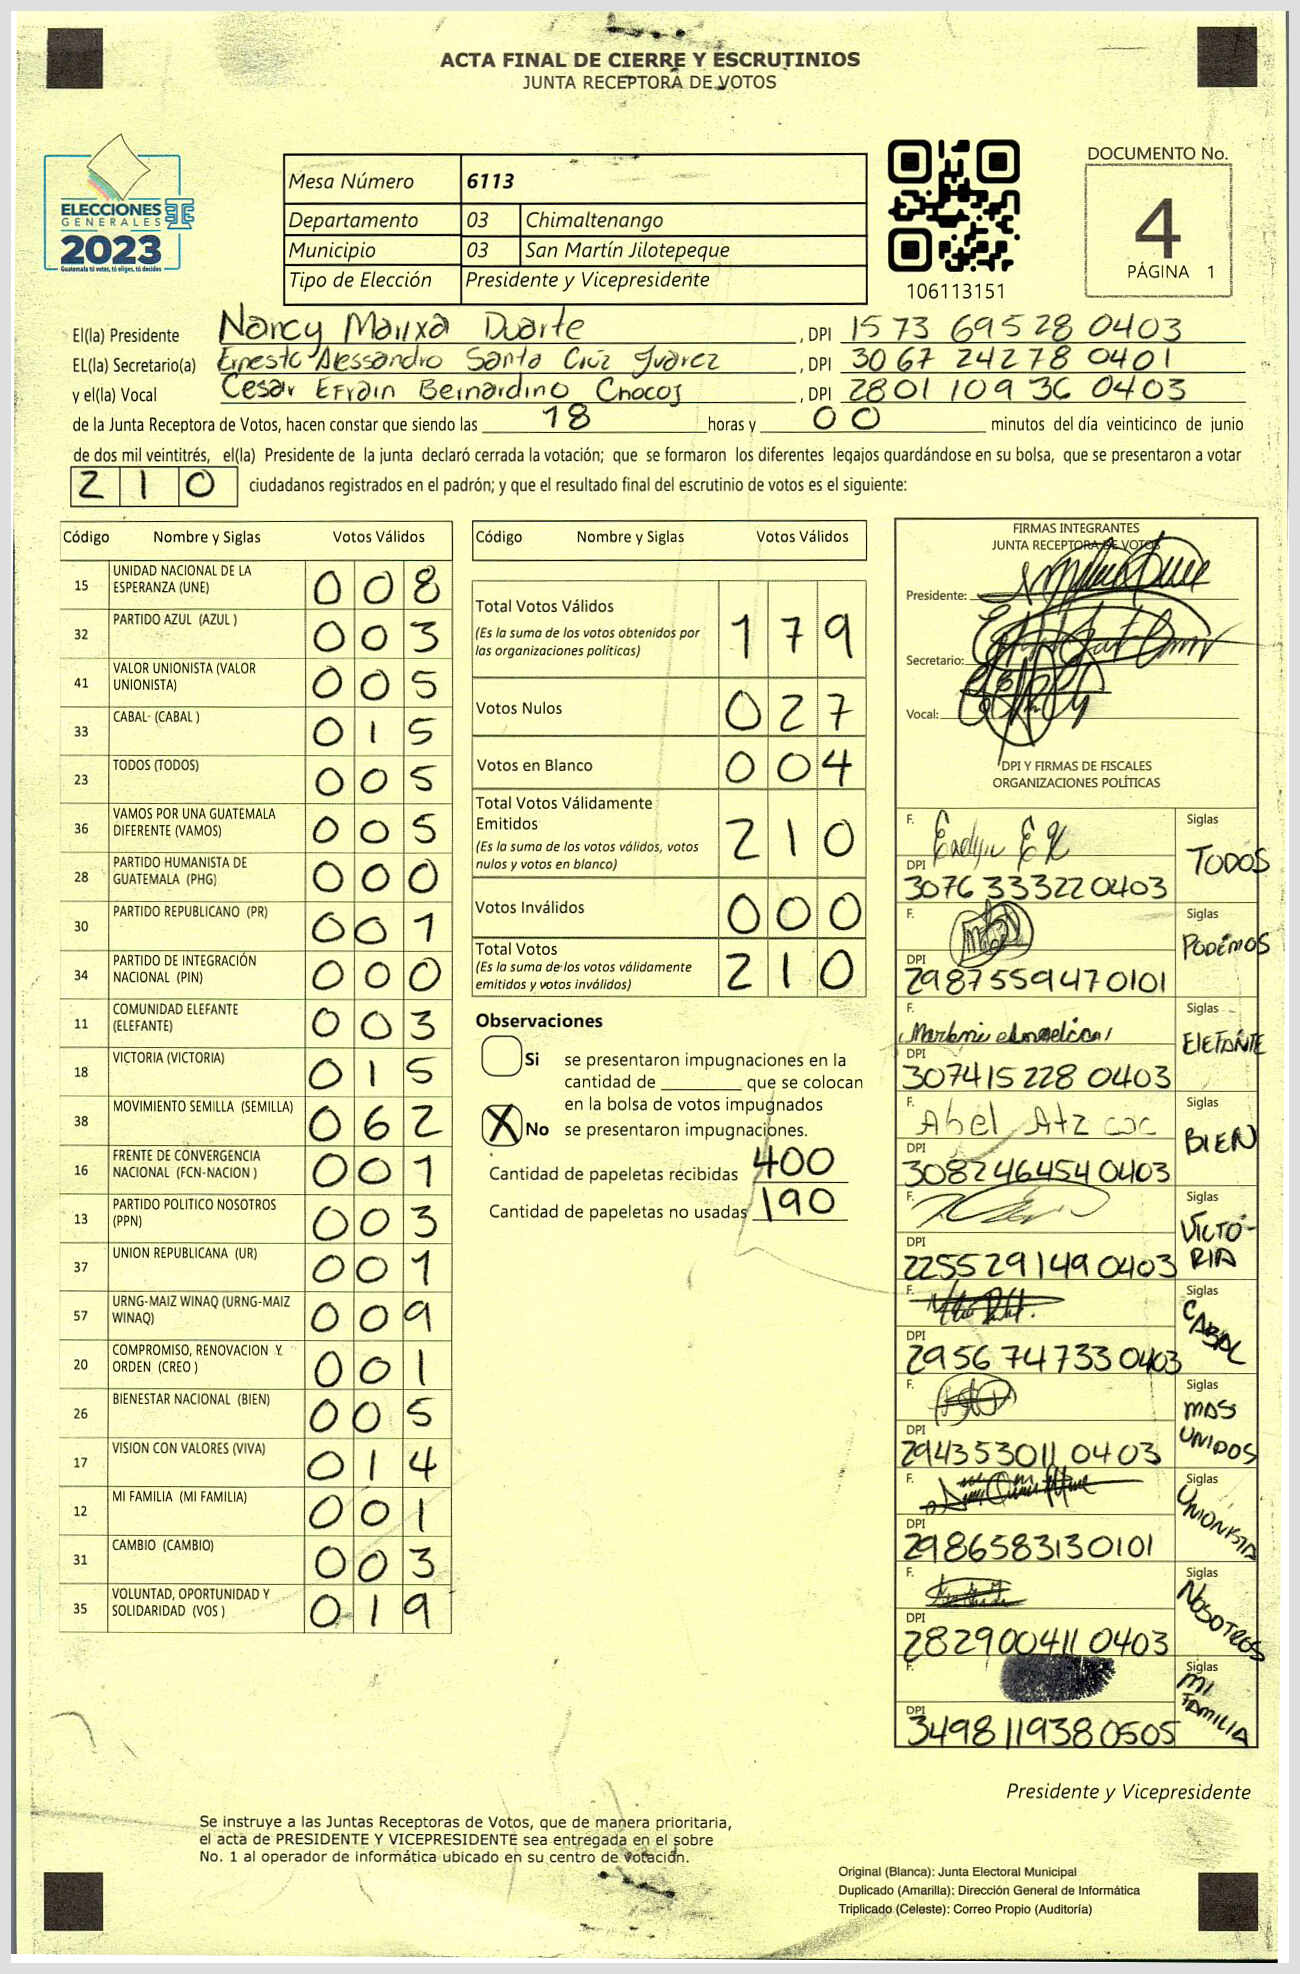 ACTA FINAL DE CIERRE Y ESCRUTINIOS
JUNTA RECEPTORA DE VOTOS
ELECCIONES
GENERALES
2023
Guatemala tú votas, tú eliges, tú decides
Mesa Número 6113
Departamento 03 Chimaltenango
Municipio 03 San Martín Jilotepeque
Tipo de Elección Presidente y Vicepresidente
106113151
DOCUMENTO No.
4
PÁGINA 1
El(la) Presidente Nancy Marixa Duarte, DPI 1573 69528 0403
EL(la) Secretario(a) Ernesto Alessandro Santa Cruz Juarez, DPI 3067 24278 0401
y el(la) Vocal Cesar Efrain Bernardino Chocoj, DPI 2801 10936 0403
de la Junta Receptora de Votos, hacen constar que siendo las 18 horas y 00 minutos del día veinticinco de junio
de dos mil veintitrés, el(la) Presidente de la junta declaró cerrada la votación; que se formaron los diferentes legajos guardándose en su bolsa, que se presentaron a votar
210 ciudadanos registrados en el padrón; y que el resultado final del escrutinio de votos es el siguiente:
Código Nombre y Siglas Votos Válidos
15 UNIDAD NACIONAL DE LA ESPERANZA (UNE) 008
32 PARTIDO AZUL (AZUL ) 003
41 VALOR UNIONISTA (VALOR UNIONISTA) 005
33 CABAL- (CABAL ) 015
23 TODOS (TODOS) 005
36 VAMOS POR UNA GUATEMALA DIFERENTE (VAMOS) 005
28 PARTIDO HUMANISTA DE GUATEMALA (PHG) 000
30 PARTIDO REPUBLICANO (PR) 001
34 PARTIDO DE INTEGRACIÓN NACIONAL (PIN) 000
11 COMUNIDAD ELEFANTE (ELEFANTE) 003
18 VICTORIA (VICTORIA) 015
38 MOVIMIENTO SEMILLA (SEMILLA) 062
16 FRENTE DE CONVERGENCIA NACIONAL (FCN-NACION ) 001
13 PARTIDO POLITICO NOSOTROS (PPN) 003
37 UNION REPUBLICANA (UR) 001
57 URNG-MAIZ WINAQ (URNG-MAIZ WINAQ) 009
20 COMPROMISO, RENOVACION Y ORDEN (CREO ) 001
26 BIENESTAR NACIONAL (BIEN) 005
17 VISION CON VALORES (VIVA) 014
12 MI FAMILIA (MI FAMILIA) 001
31 CAMBIO (CAMBIO) 003
35 VOLUNTAD, OPORTUNIDAD Y SOLIDARIDAD (VOS ) 019
Código Nombre y Siglas Votos Válidos
Total Votos Válidos 179
(Es la suma de los votos obtenidos por
las organizaciones políticas)
Votos Nulos 027
Votos en Blanco 004
Total Votos Válidamente
Emitidos 210
(Es la suma de los votos válidos, votos
nulos y votos en blanco)
Votos Inválidos 000
Total Votos 210
(Es la suma de los votos válidamente
emitidos y votos inválidos)
Observaciones
Si se presentaron impugnaciones en la
cantidad de ________ que se colocan
en la bolsa de votos impugnados
X No se presentaron impugnaciones.
Cantidad de papeletas recibidas 400
Cantidad de papeletas no usadas 190
FIRMAS INTEGRANTES
JUNTA RECEPTORA DE VOTOS
Presidente:
Secretario:
Vocal:
DPI Y FIRMAS DE FISCALES
ORGANIZACIONES POLÍTICAS
F. Siglas TODOS
DPI 3076 33322 0403
F. Siglas PODEMOS
DPI 2987559470101
F. Siglas ElEFANTE
DPI 307415228 0403
F. Abel Atz coc Siglas BIEN
DPI 3082464540403
F. Siglas VICTO-
RIA
DPI 2255291490403
F. Siglas CABAL
DPI 2956747330403
F. Siglas MAS
UNIDOS
DPI 294353011 0403
F. Siglas UNIONISTA
DPI 2986583130101
F. Siglas NOSOTROS
DPI 282900411 0403
F. Siglas MI
FAMILIA
DPI 3498119380505
Presidente y Vicepresidente
Se instruye a las Juntas Receptoras de Votos, que de manera prioritaria,
el acta de PRESIDENTE Y VICEPRESIDENTE sea entregada en el sobre
No. 1 al operador de informática ubicado en su centro de votación.
Original (Blanca): Junta Electoral Municipal
Duplicado (Amarilla): Dirección General de Informática
Triplicado (Celeste): Correo Propio (Auditoría)